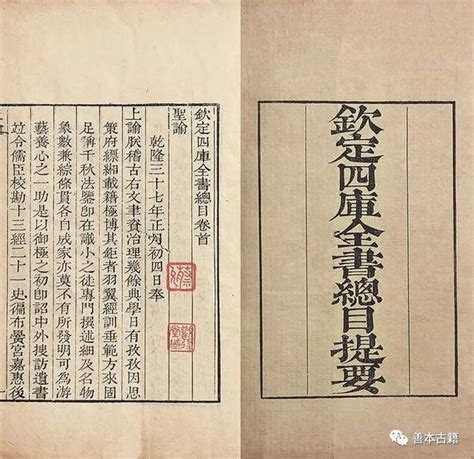 欽定四庫全書總目提要
欽定四庫全書總目卷首
聖諭
乾隆三十七年正月初四日奉
上諭朕稽古右文聿資治理幾餘典學日有孜孜因思
策府縹緗載籍極博其鉅者羽翼經訓垂範方來固
足稱千秋法鑒即在識小之徒專門撰述細及名物
象數兼綜條貫各自成家亦莫不有所發明可為游
藝養心之一助是以御極之初即詔中外搜訪遺書
竝令儒臣校勘十三經二十一史徧布黌宮嘉惠後
善本古籍